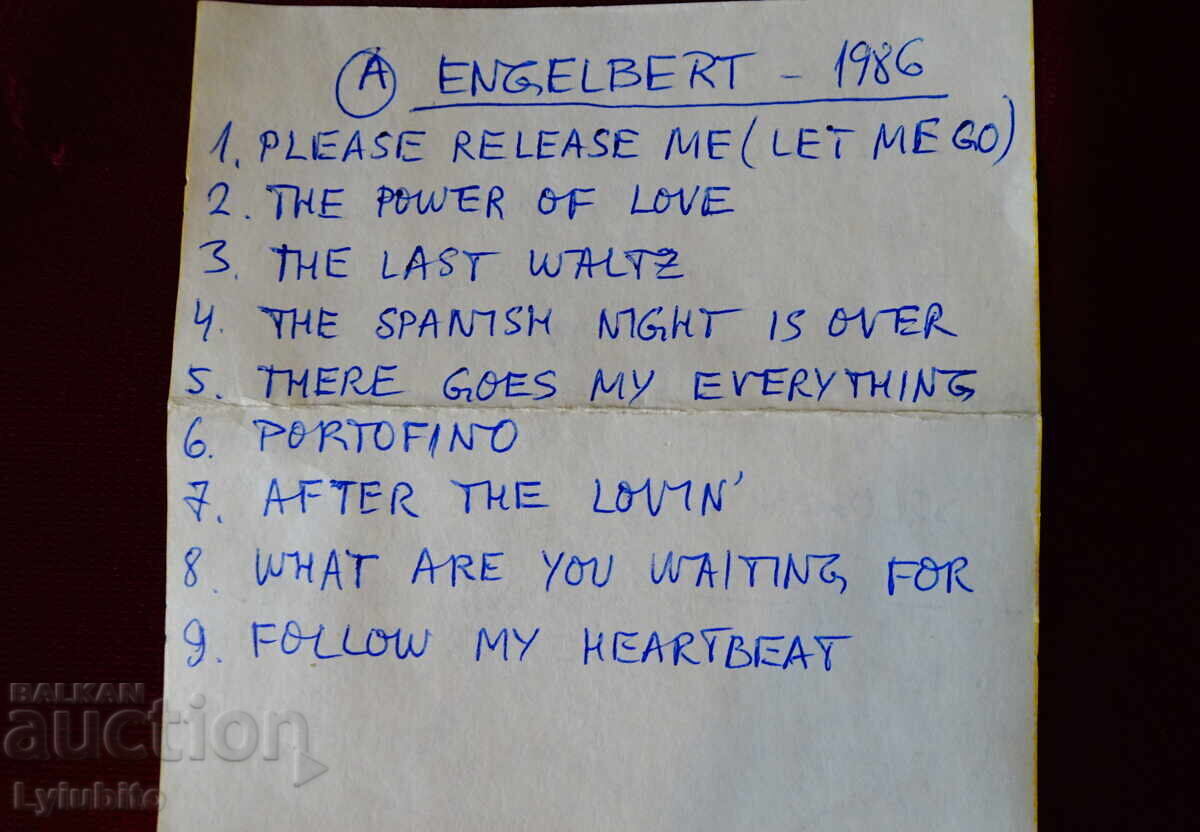 A ENGELBERT - 1986
1. PLEASE RELEASE ME (LET ME GO)
2. THE POWER OF LOVE
3. THE LAST WALTZ
4. THE SPANISH NIGHT IS OVER
5. THERE GOES MY EVERYTHING
6. PORTOFINO
7. AFTER THE LOVIN'
8. WHAT ARE YOU WAITING FOR
9. FOLLOW MY HEARTBEAT
BALKAN
auction
Lyiubito